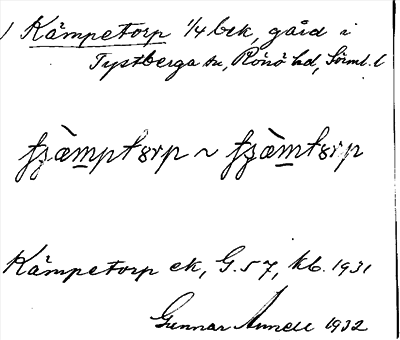 1 Kämpetorp ¼ bek, gård i
Tystberga sn, Rönö hd, Sörml. l
ꞇʒæ̀mptɤrp ~ ꞇʒæ̀mtɤrp
Kämpetorp ek, G. 57, kb. 1931
Gunnar 1932